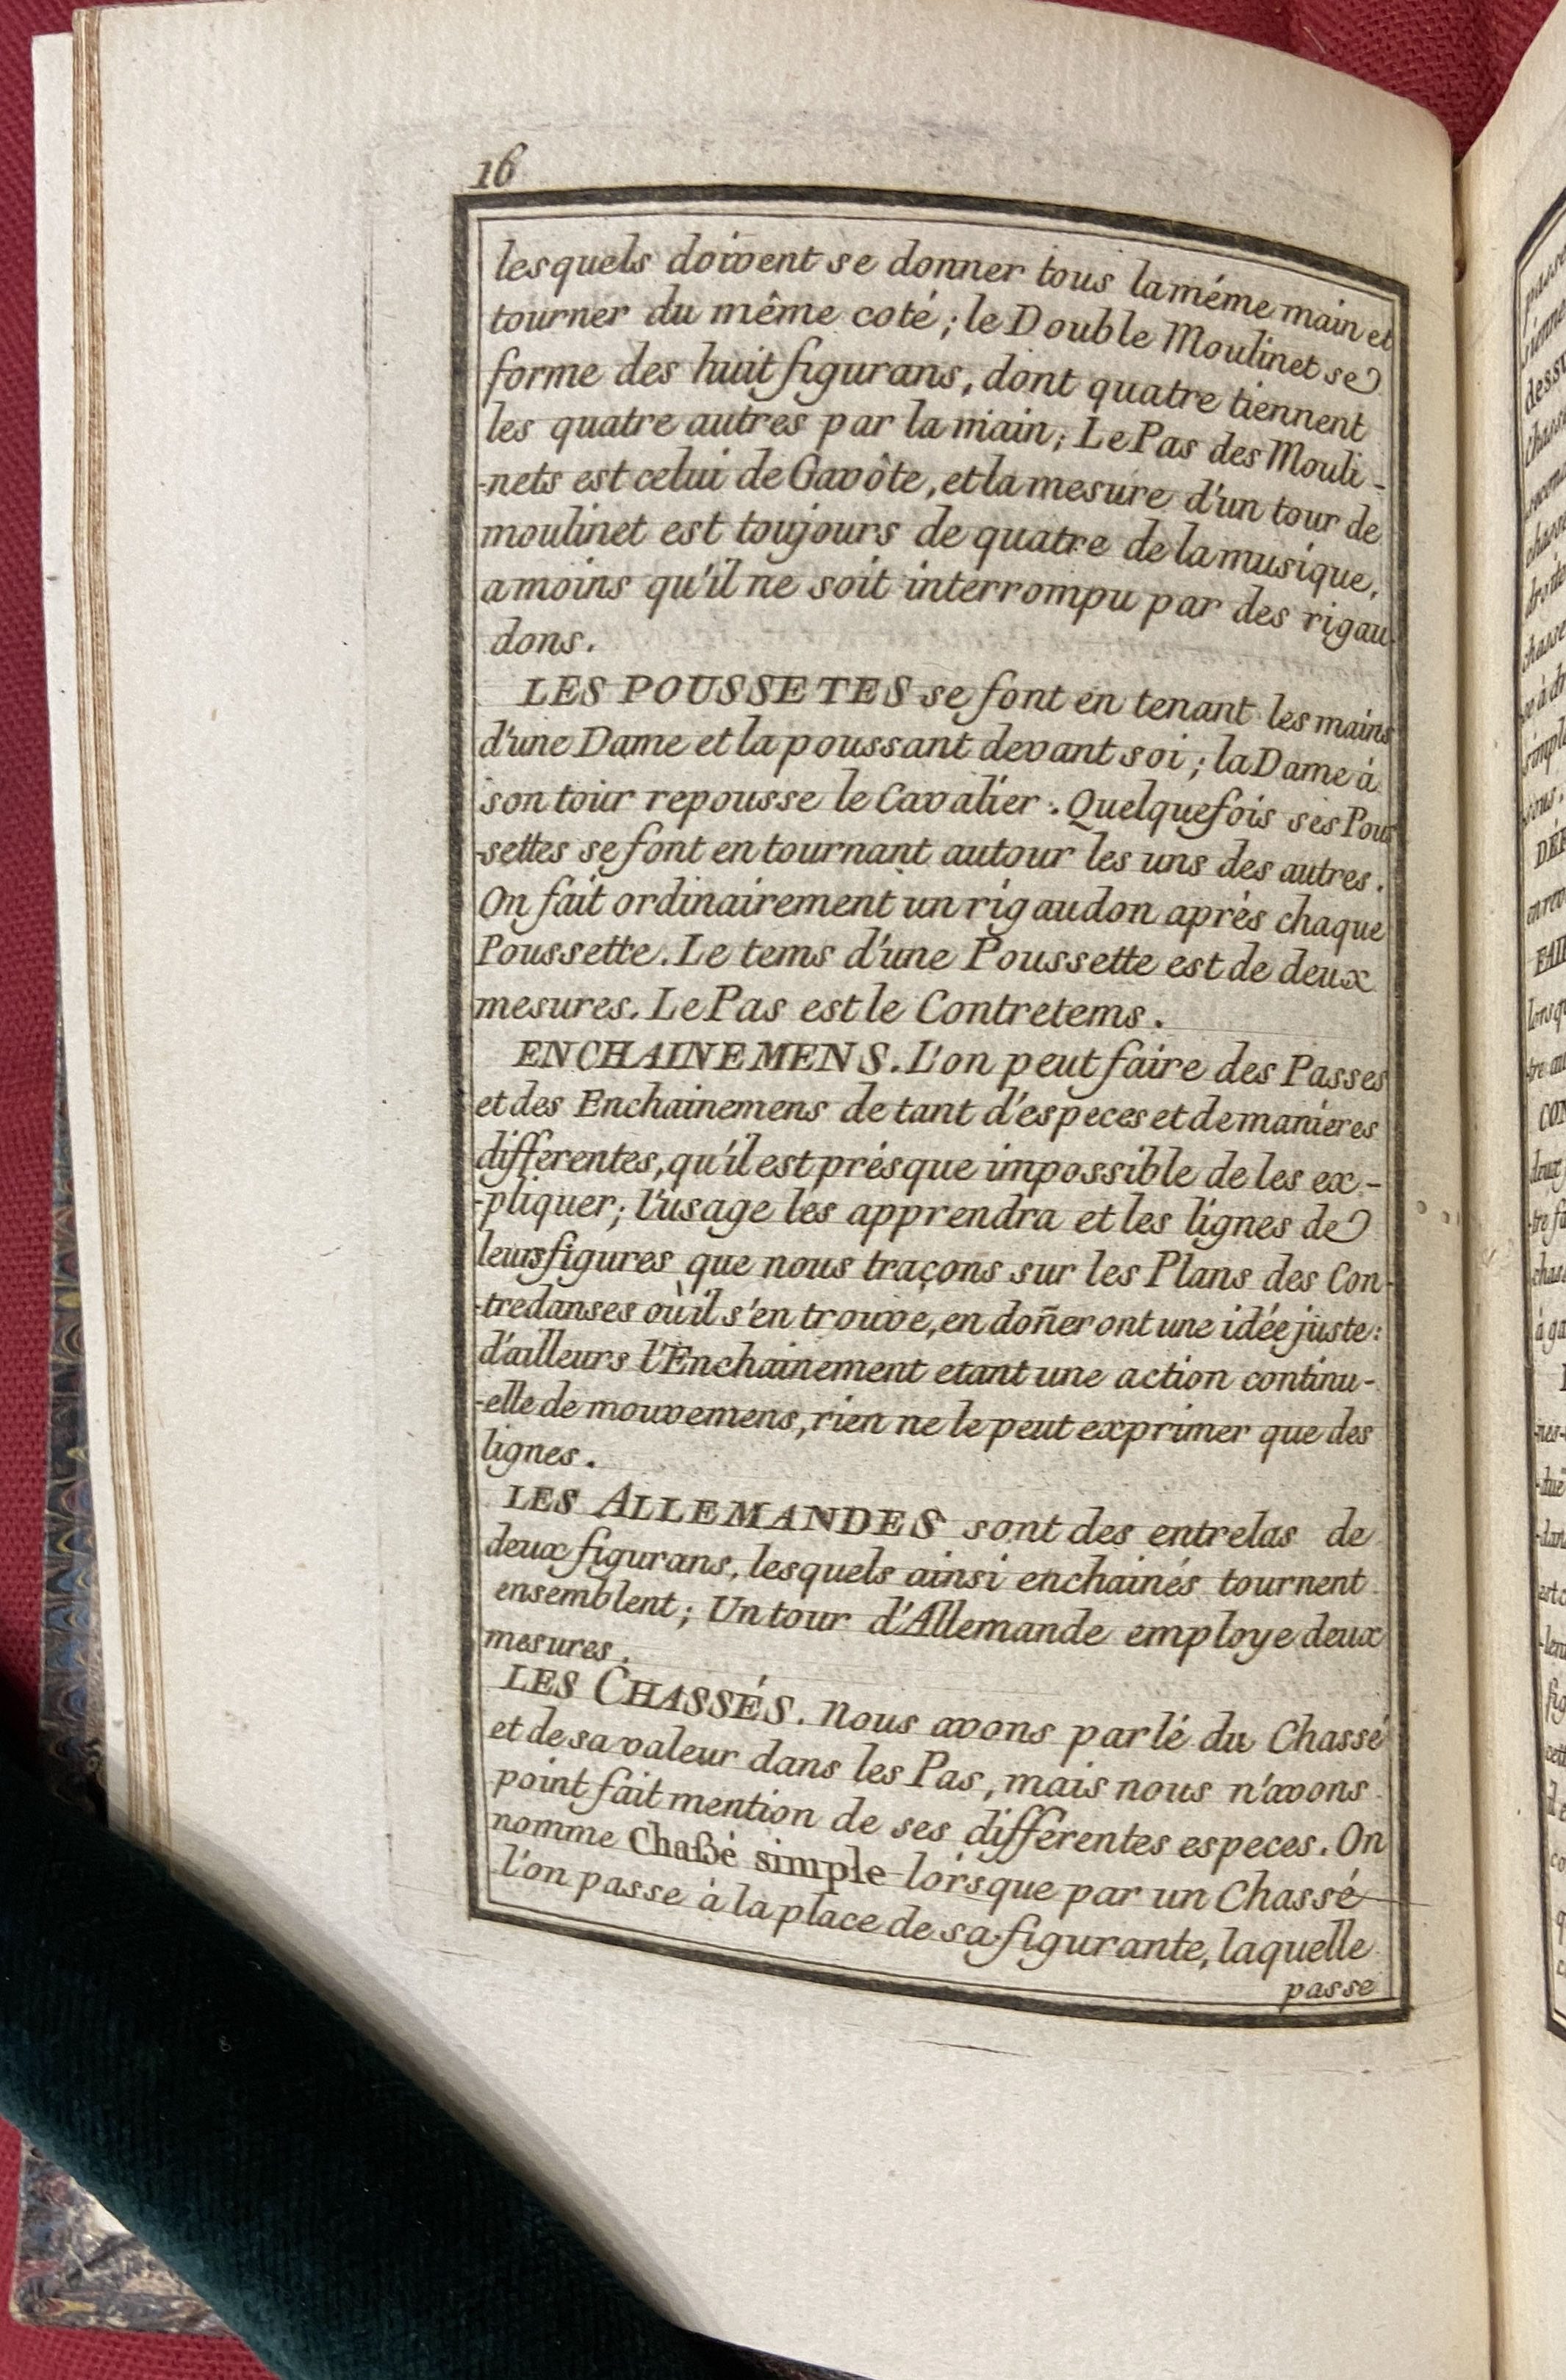 16
lesquels doivent se donner tous la méme main et
tourner du même coté; le Double Moulinet se
forme des huit figurans, dont quatre tiennent
les quatre autres par la main; Le Pas des Mouli-
-nets est celui de Gavôte, et la mesure d'un tour de
moulinet est toujours de quatre de la musique,
a moins qu'il ne soit interrompu par des rigau-
dons.
LES POUSSETES se font en tenant les mains
d'une Dame et la poussant devant soi; la Dame à
son tour repousse le Cavalier. Quelquefois ses Pous
-settes se font en tournant autour les uns des autres.
On fait ordinairement un rigaudon après chaque
Poussette. Le tems d'une Poussette est de deux
mesures. Le Pas est le Contretems.
ENCHAINEMENS. L'on peut faire des Passes
et des Enchainemens de tant d'especes et de manieres
differentes, qu'il est présque impossible de les ex-
-pliquer; l'usage les apprendra et les lignes de
leurs figures que nous traçons sur les Plans des Con-
-tredanses où il s'en trouve, en doñeront une idée juste:
d'ailleurs l'Enchainement etant une action continu-
-elle de mouvemens, rien ne le peut exprimer que des
lignes.
LES ALLEMANDES sont des entrelas de
deux figurans, lesquels ainsi enchainés tournent
ensemblent; Un tour d'Allemande employe deux
mesures.
LES CHASSÉS. Nous avons parlé du Chassé
et de sa valeur dans les Pas, mais nous n'avons
point fait mention de ses différentes especes. On
nomme Chaßé simple lorsque par un Chassé
l'on passe à la place de sa figurante, laquelle
passe